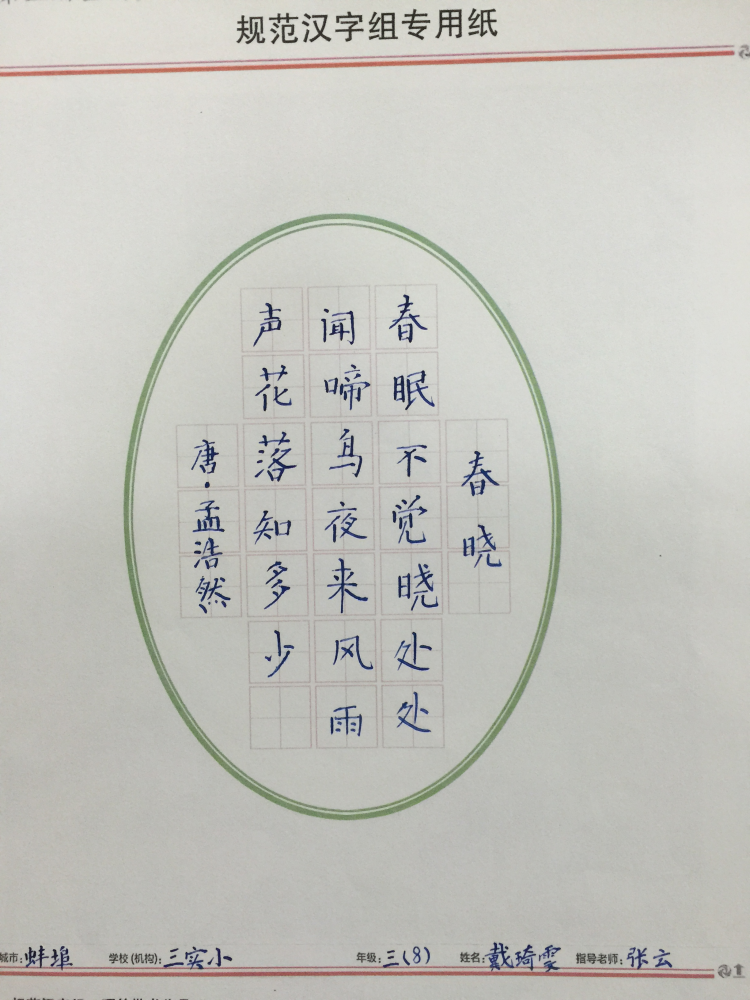 规范汉字组专用纸
春晓
春眠不觉晓处处
闻啼鸟夜来风雨
声花落知多少
唐·孟浩然
城市：蚌埠 学校(机构)：三实小 年级：三(8) 姓名：戴琦雯 指导老师：张云